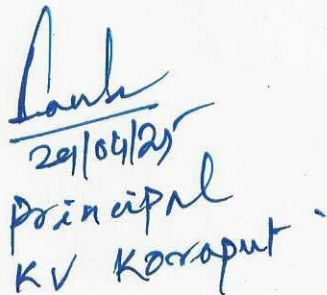 29/04/25
Principal
KV Koraput